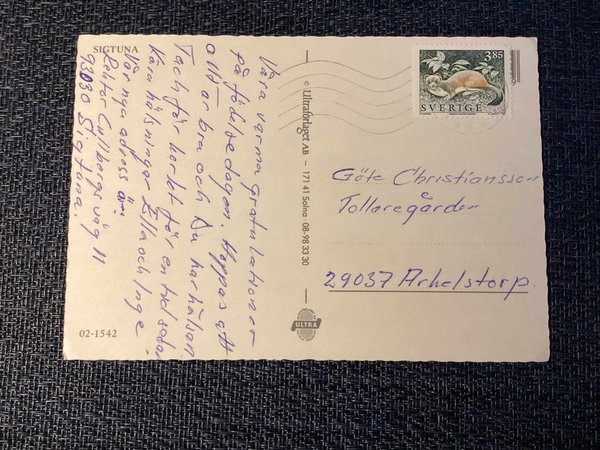 SIGTUNA
Våra varma gratulationer
på födelsedagen. Hoppas att
allt är bra och Du har hälsan
Tack för kortet för en tid sedan
Kära hälsningar Zilla och Inge
Vår nya adress är:
Rektor Cullbergs väg 11
93030 Sigtuna.
02-1542
© Ultraförlaget AB — 171 41 Solna 08-98 33 30
ULTRA
3.85
SVERIGE
Göte Christiansson
Tollaregården
29037 Arkelstorp.